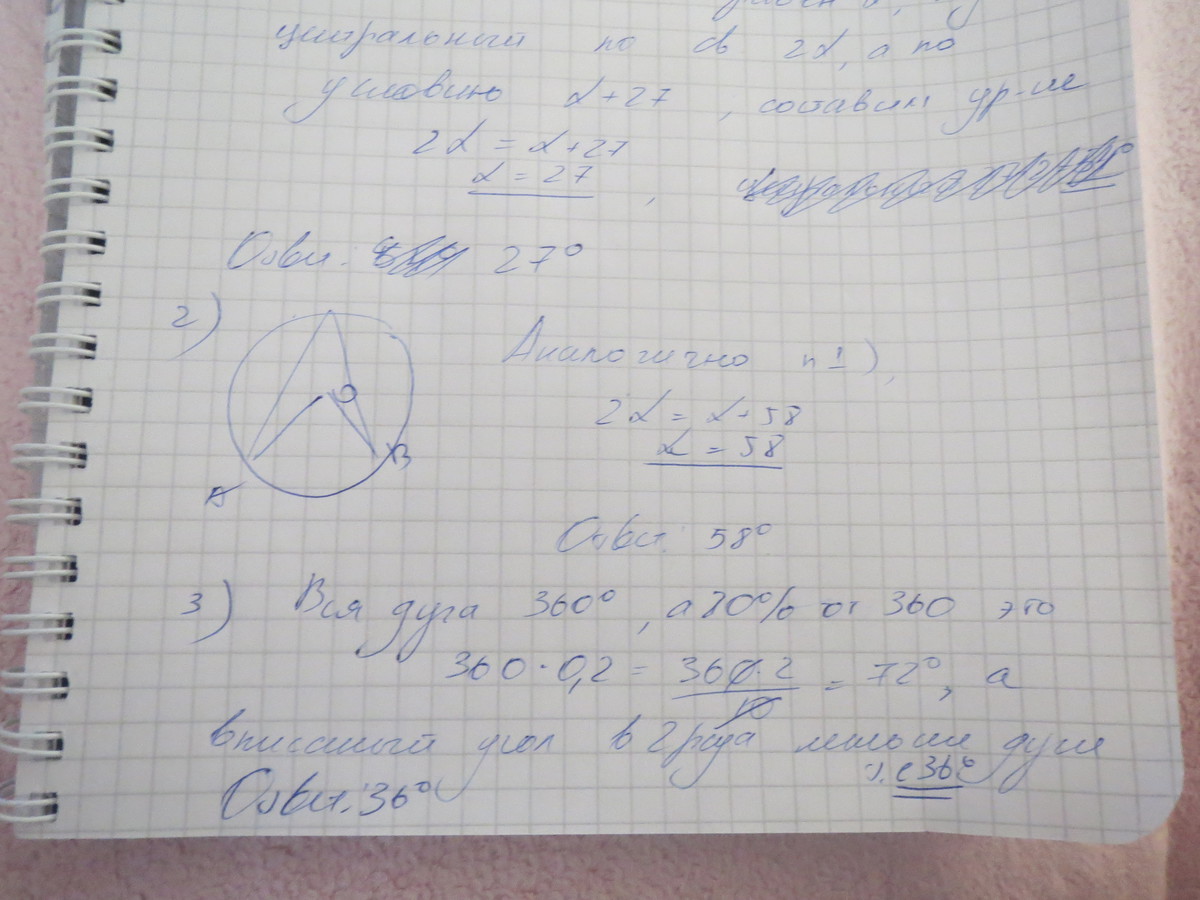 центральный по св 2α, а по
условию α+27 , составим ур-ие
2α = α+27
α = 27 ,
Ответ: 27°
2)
Аналогично п 1),
O
2α = α+58
α = 58
B
A
Ответ: 58°
3) Вся дуга 360°, а 20% от 360 это
360·0,2 = 360·2/10 = 72°, а
вписаный угол в 2 раза меньше дуги
т.е 36°
Ответ: 36°